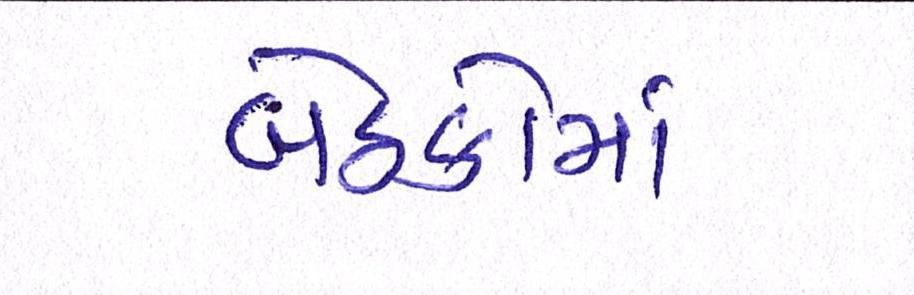 બેઠકોમાં